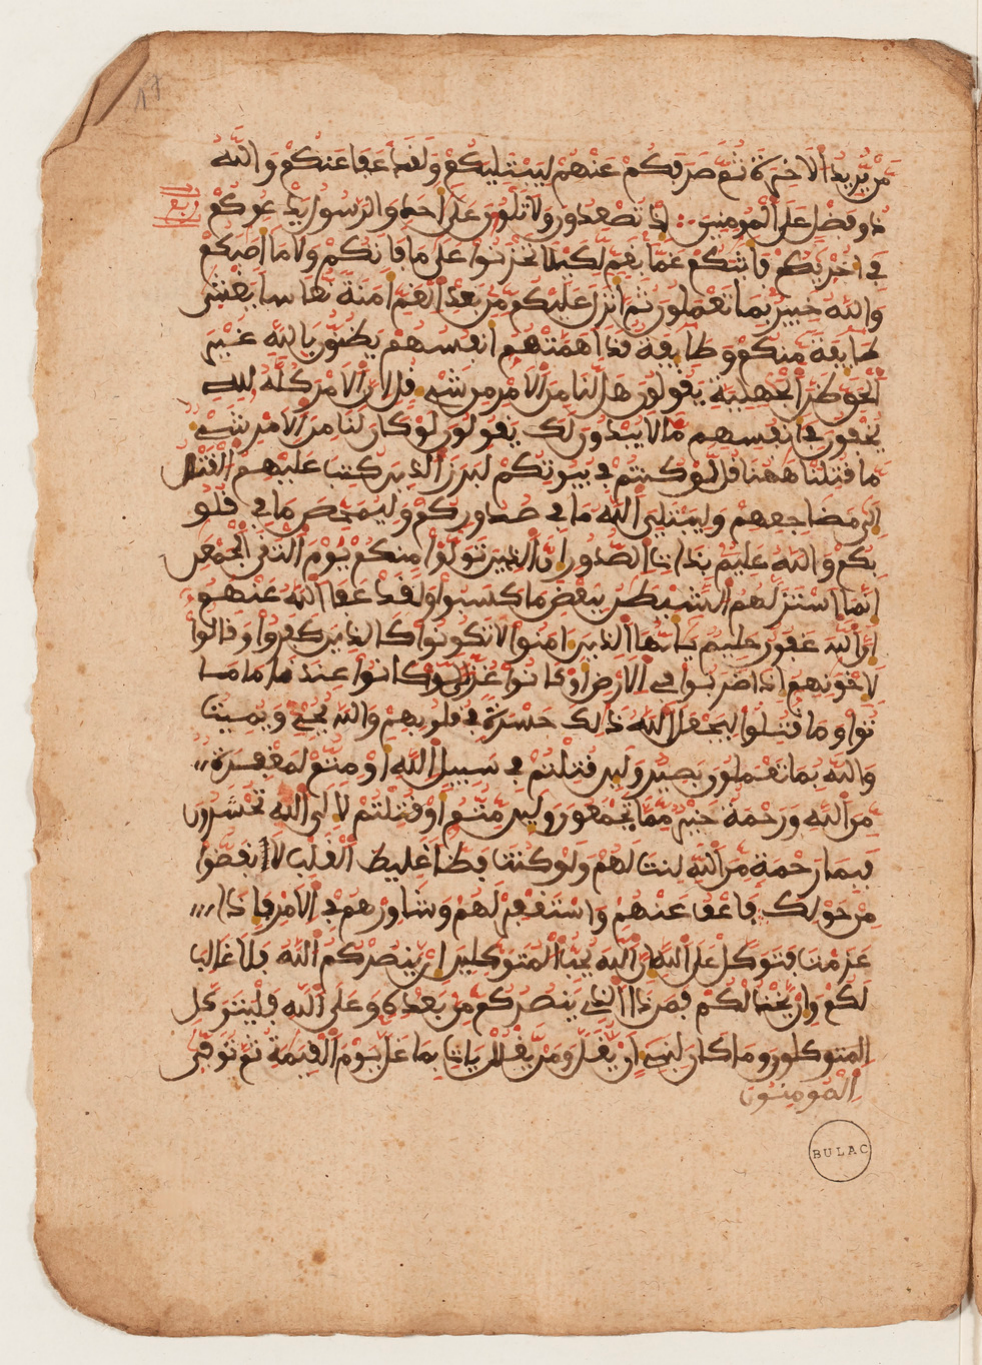 17
من يريد الاخرة ثم صرفكم عنهم ليبتليكم ولقد عفا عنكم والله
ذو فضل على المومنين اذ تصعدون ولا تلون على احد والرسول يدعوكم
ربع
في اخريكم فاثبكم غما بغم لكيلا تحزنوا على ما فاتكم ولا ما اصبكم
والله خبير بما تعملون ثم انزل عليكم من بعد الغم امنة نعاسا يغشى
طايفة منكم وطايفة قد اهمتهم انفسهم يظنون بالله غير
الحق ظن الجهلية يقولون هل لنا من الامر من شيء قل ان الامر كله لله
يخفون في انفسهم ما لا يبدون لك يقولون لو كان لنا من الامر شيء
ما قتلنا ههنا قل لو كنتم في بيوتكم لبرز الذين كتب عليهم القتل
الى مضاجعهم وليبتلي الله ما في صدوركم وليمحص ما في قلو
بكم والله عليم بذات الصدور ان الذين تولوا منكم يوم التقى الجمعن
انما استزلهم الشيطن ببعض ما كسبوا ولقد عفا الله عنهم
ان الله غفور حليم يايها الذين امنوا لا تكونوا كالذين كفروا وقالوا
لاخونهم اذا ضربوا في الارض او كانوا غزى لو كانوا عندنا ما ما
توا وما قتلوا ليجعل الله ذلك حسرة في قلوبهم والله يحي ويميت
والله بما تعملون بصير ولين قتلتم في سبيل الله او متم لمغفرة
من الله ورحمة خير مما تجمعون ولين متم او قتلتم لالى الله تحشرون
فبما رحمة من الله لنت لهم ولو كنت فظا غليظ القلب لانفضوا
من حولك فاعف عنهم واستغفر لهم وشاورهم في الامر فاذا
عزمت فتوكل على الله ان الله يحب المتوكلين ان ينصركم الله فلا غالب
لكم وان يخذلكم فمن ذا الذي ينصركم من بعده وعلى الله فليتوكل
المتوكلون وما كان لنبي ان يغل ومن يغلل يات بما غل يوم القيمة ثم توفى
المومنون
BULAC